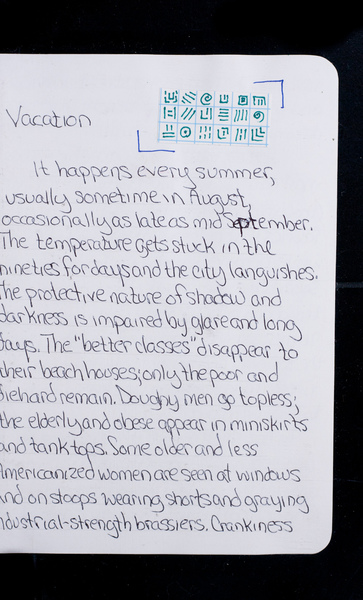 Vacation
It happens every summer,
usually sometime in August,
occasionally as late as mid September.
The temperature gets stuck in the
nineties for days and the city languishes.
The protective nature of shadow and
darkness is impaired by glare and long
days. The "better classes" disappear to
their beach houses; only the poor and
diehard remain. Doughy men go topless;
the elderly and obese appear in miniskirts
and tank tops. Some older and less
Americanized women are seen at windows
and on stoops wearing shorts and graying
industrial-strength brassiers. Crankiness